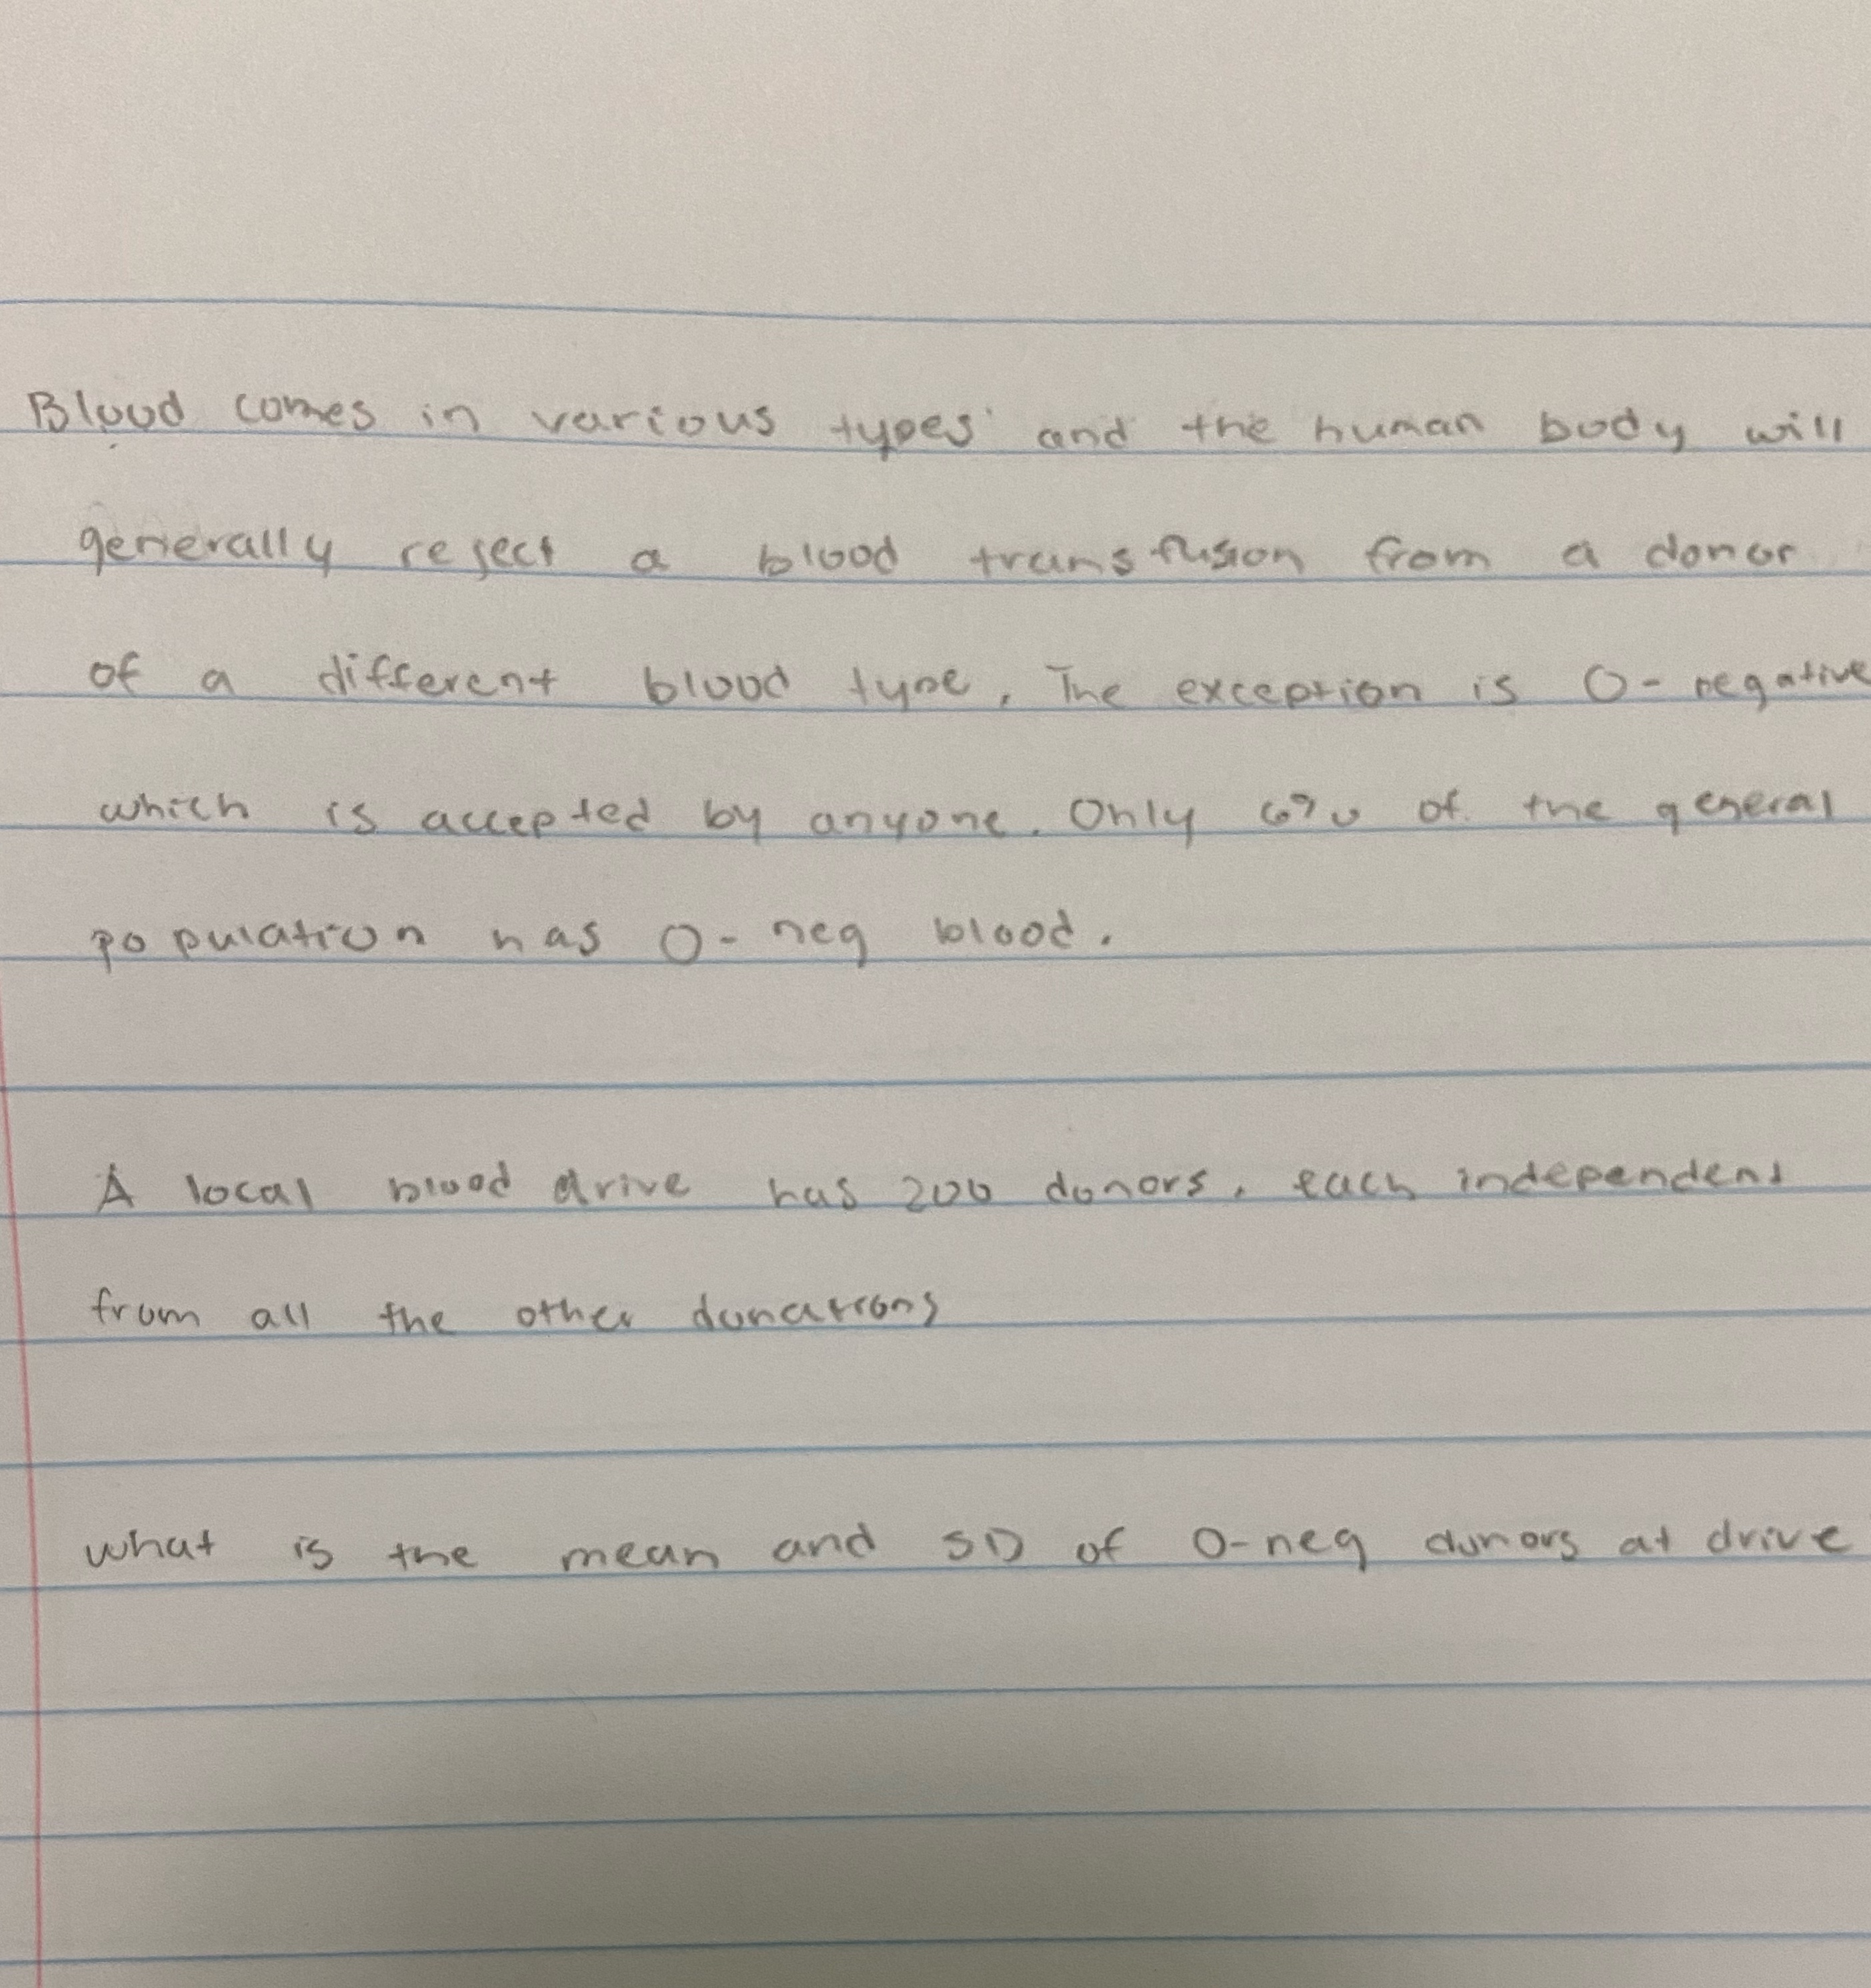 Blood comes in various types and the human body will
generally reject a blood transfusion from a donor
of a different blood type. The exception is O-negative
which is accepted by anyone. Only 6% of the general
population has O-neg blood.
A local blood drive has 200 donors, each independent
from all the other donations
what is the mean and SD of O-neg donors at drive